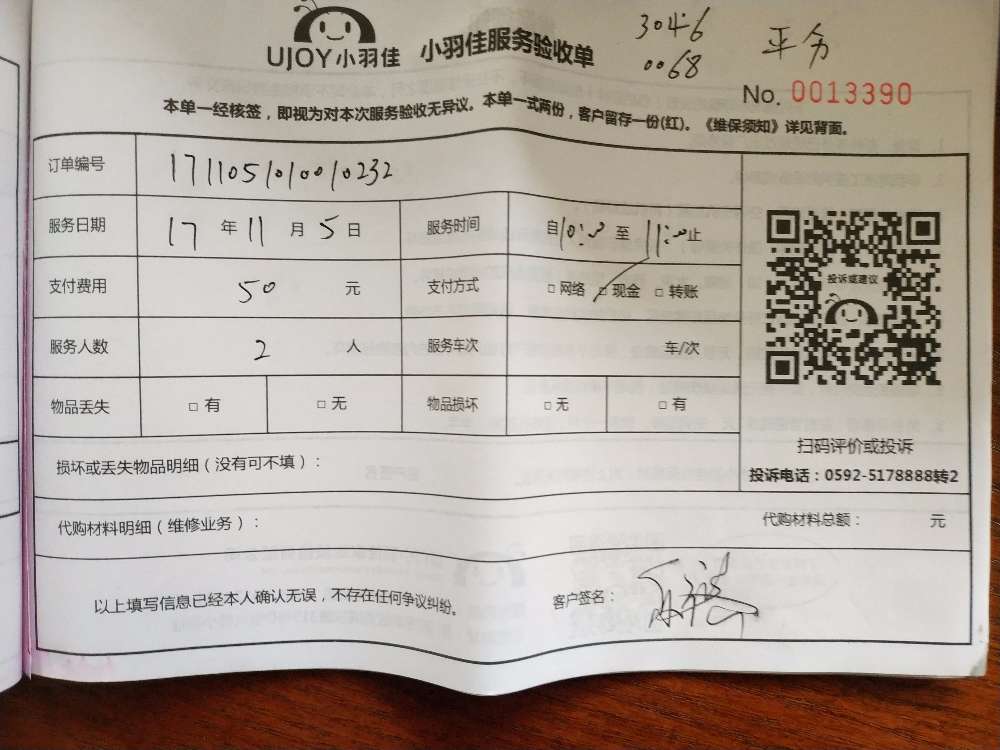 UJOY小羽佳 小羽佳服务验收单
3046
0068
No. 0013390
本单一经核签，即视为对本次服务验收无异议。本单一式两份，客户留存一份(红)。《维保须知》详见背面。
订单编号 1711051010010232
服务日期 17 年 11 月 5 日 服务时间 自10:00 至 11:00止
支付费用 50 元 支付方式 □ 网络 □ 现金 □ 转账
投诉或建议
服务人数 2 人 服务车次 车/次
物品丢失 □ 有 □ 无 物品损坏 □ 无 □ 有
扫码评价或投诉
损坏或丢失物品明细（没有可不填）：
投诉电话：0592-5178888转2
代购材料明细（维修业务）： 代购材料总额： 元
以上填写信息已经本人确认无误，不存在任何争议纠纷。 客户签名：